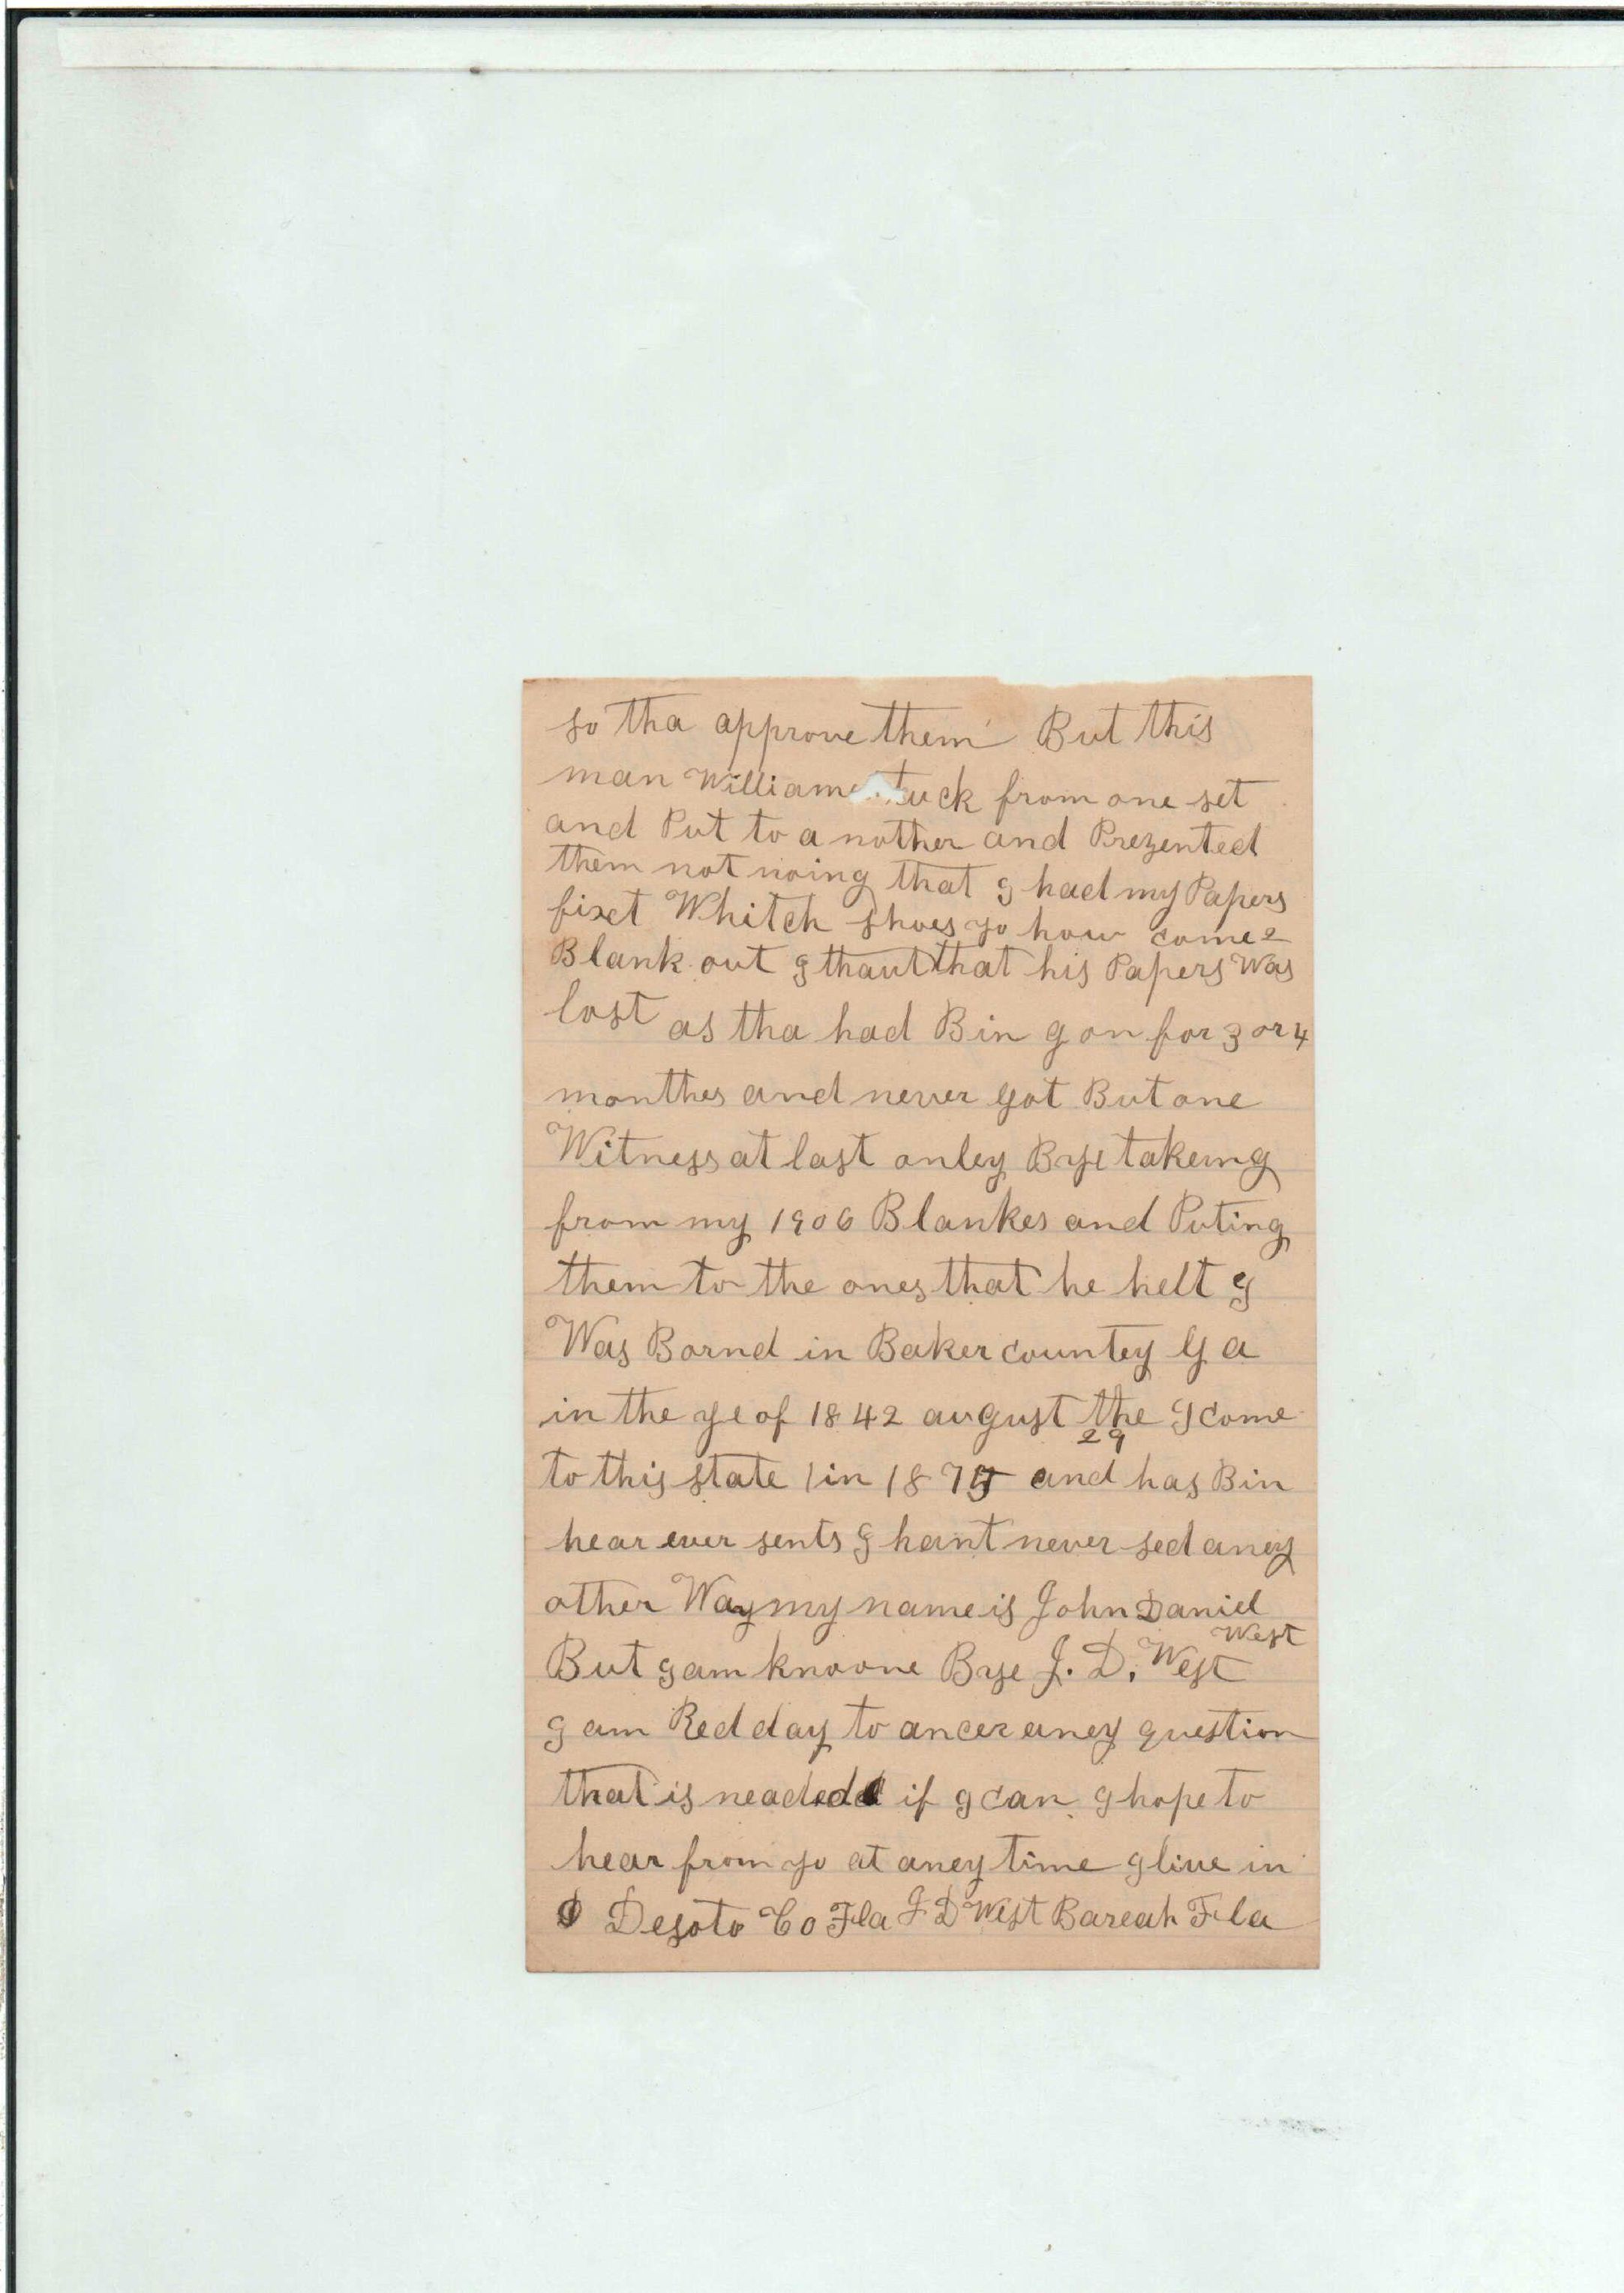 so tha approve them But this
man Williams tuck from one set
and Put to a nother and Prezented
them not noing that I had my Papers
fixt Whitch shoes yo how come 2
Blank out I thaut that his Papers Was
lost as tha had Bin gon for 3 or 4
monthes and never got But one
Witness at last onley Bye takeing
from my 1906 Blankes and Puting
them to the ones that he helt I
Was Bornd in Baker countey Ga
in the ye of 1842 august the 29 I come
to this state in 1875 and has Bin
hear ever sents I hant never sed aney
other Way my name is John Daniel West
But I am knoone Bye J. D. West
I am Red day to ancer aney question
that is neaded if I can I hope to
hear from yo at aney time I live in
Desoto Co Fla J D West Bareah Fla